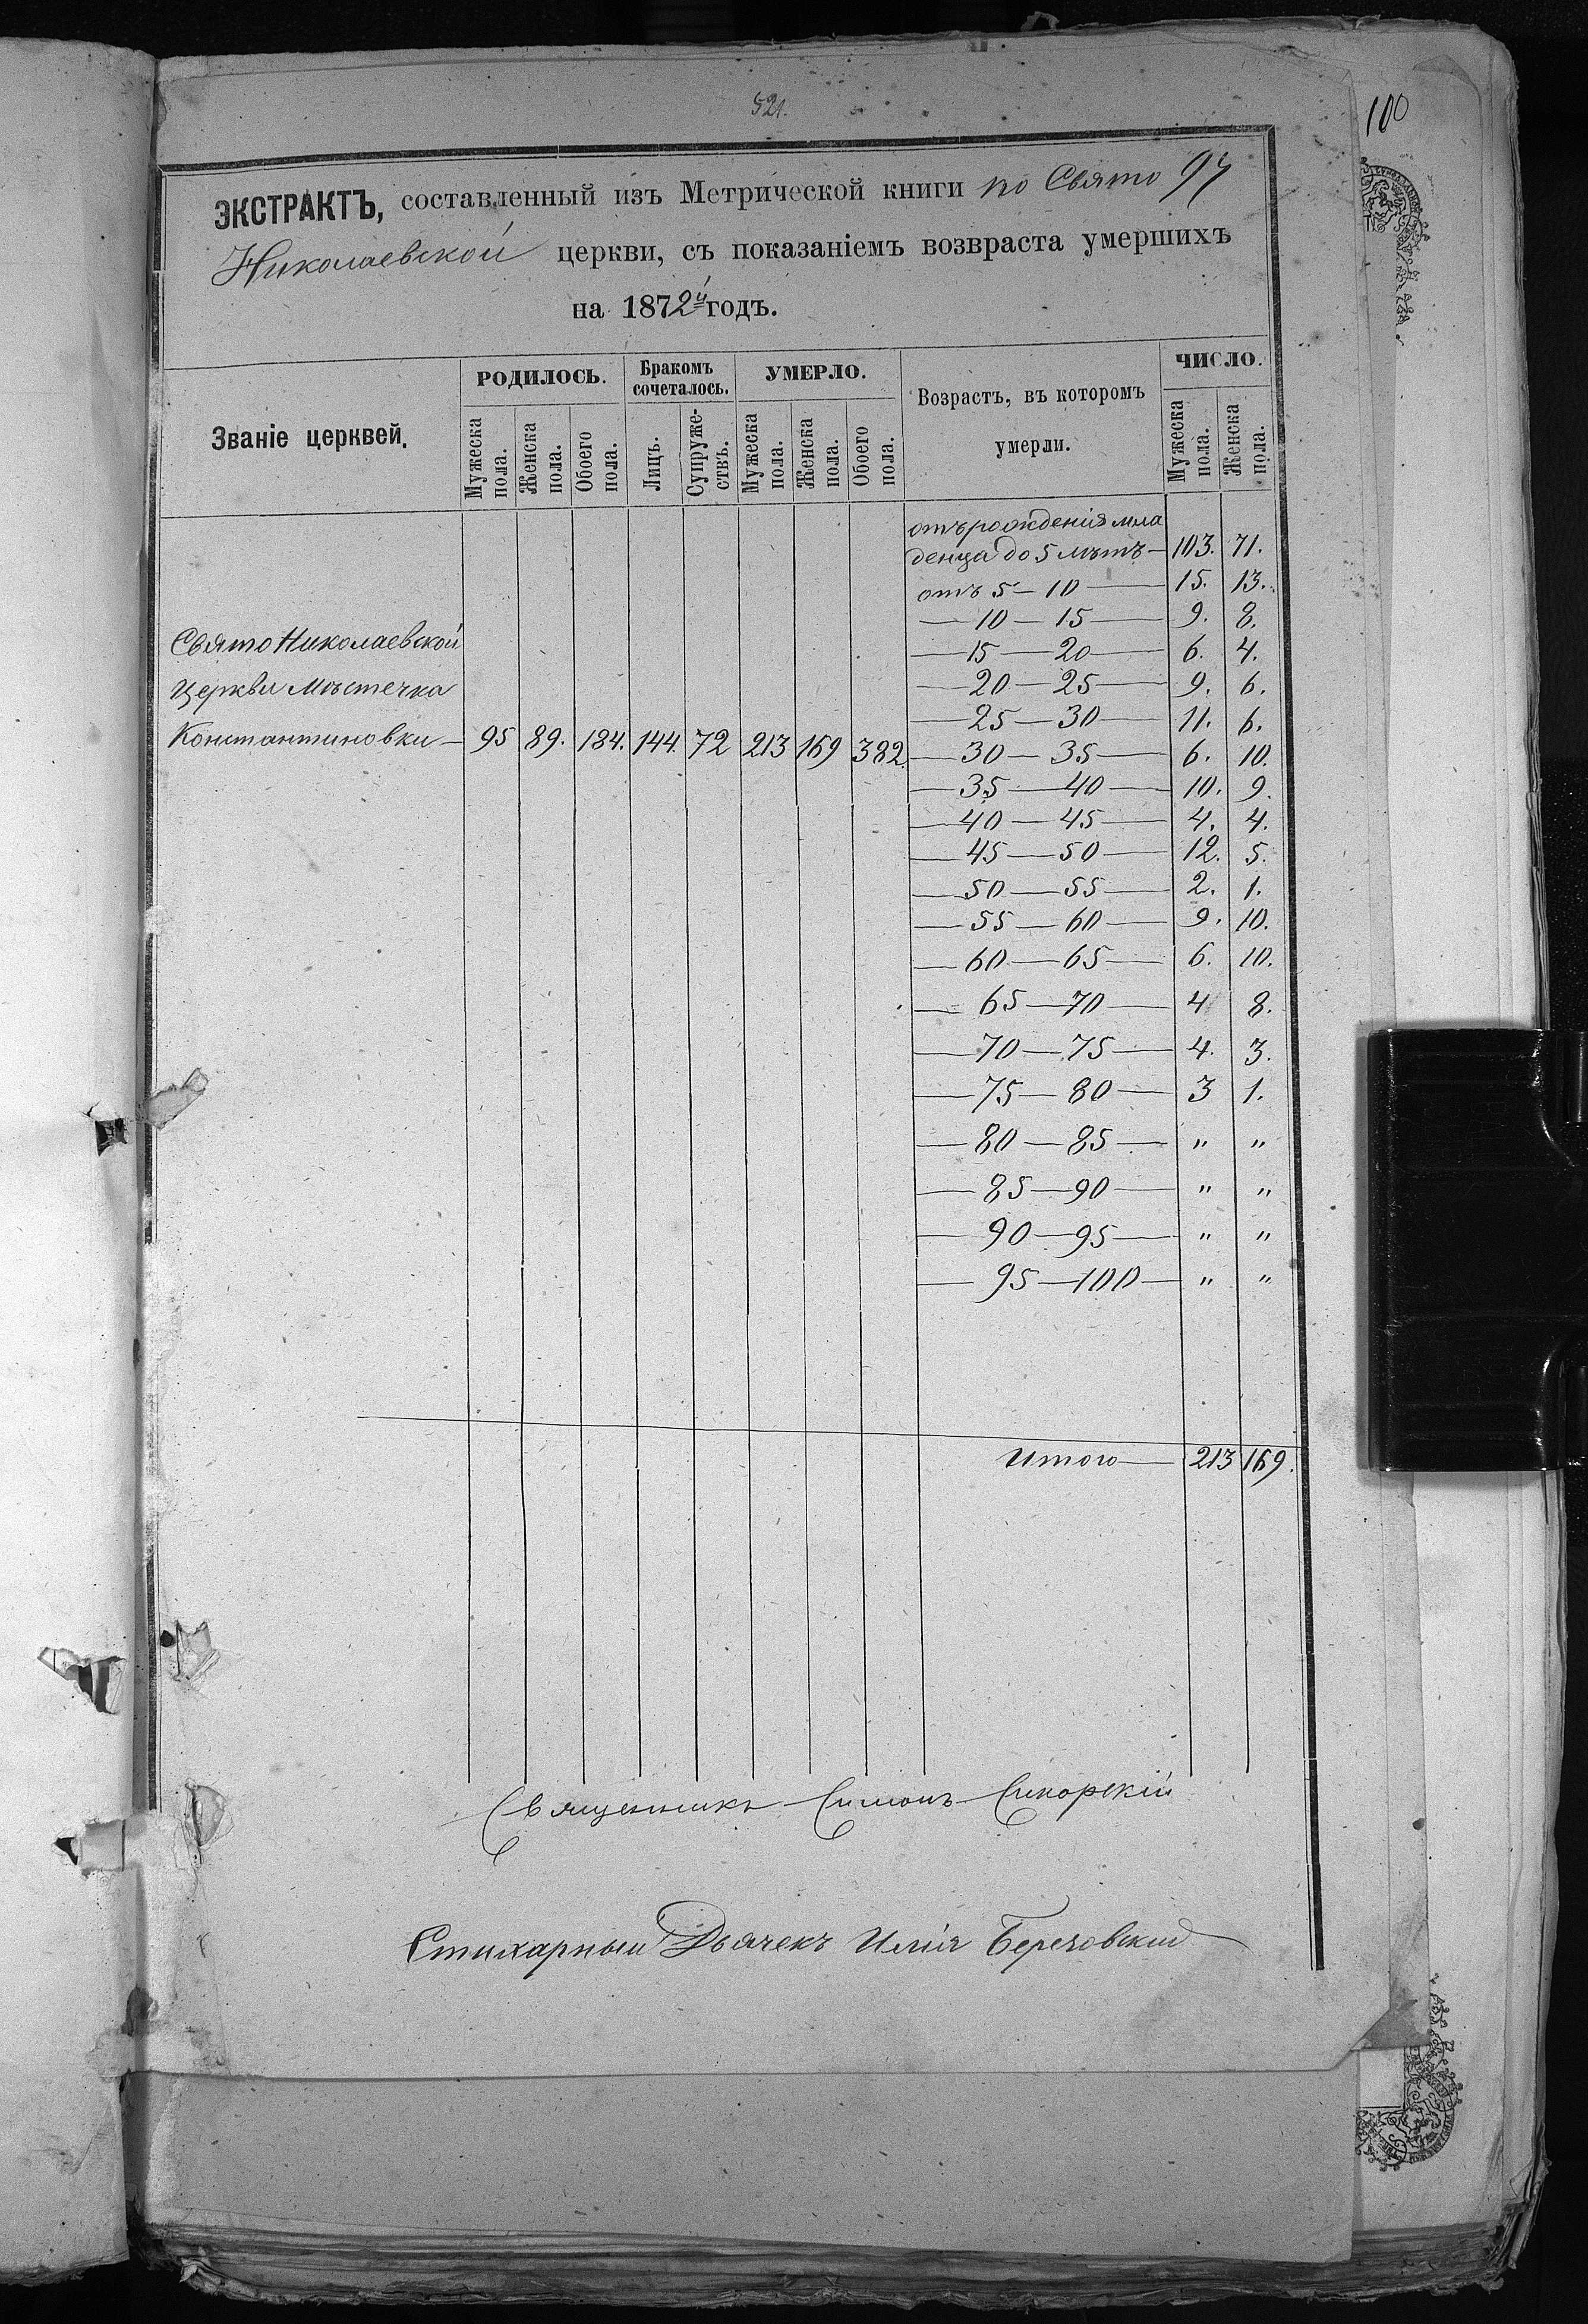 521.
100
ЭКСТРАКТЪ, составленный изъ Метрической книги по Свято
Николаевской церкви, съ показаніемъ возвраста умершихъ
на 1872й годъ.
Званіе церквей.
РОДИЛОСЬ.
Бракомъ сочеталось.
УМЕРЛО.
Возрастъ, въ которомъ
умерли.
ЧИСЛО.
Мужеска пола.
Женска пола.
Обоего пола.
Лицъ.
Супружествъ.
Мужеска пола.
Женска пола.
Обоего пола.
Мужеска пола.
Женска пола.
отъ рожденія мла
денца до 5 лѣтъ — 103. 71.
отъ 5 — 10 — 15. 13.
— 10 — 15 — 9. 8.
Свято Николаевской
— 15 — 20 — 6. 4.
Церкви Мѣстечка
— 20 — 25 — 9. 6.
— 25 — 30 — 11. 6.
Константиновки — 95 89. 184. 144. 72 213 169 382.
— 30 — 35 — 6. 10.
— 35 — 40 — 10. 9.
— 40 — 45 — 4. 4.
— 45 — 50 — 12. 5.
— 50 — 55 — 2. 1.
— 55 — 60 — 9. 10.
— 60 — 65 — 6. 10.
— 65 — 70 — 4 8.
— 70 — 75 — 4. 3.
— 75 — 80 — 3 1.
— 80 — 85 — " "
— 85 — 90 — " "
— 90 — 95 — " "
— 95 — 100 — " "
Итого — 213 169.
Священникъ Симонъ Сикорскій
Стихарный Дьячекъ Илія Березовский